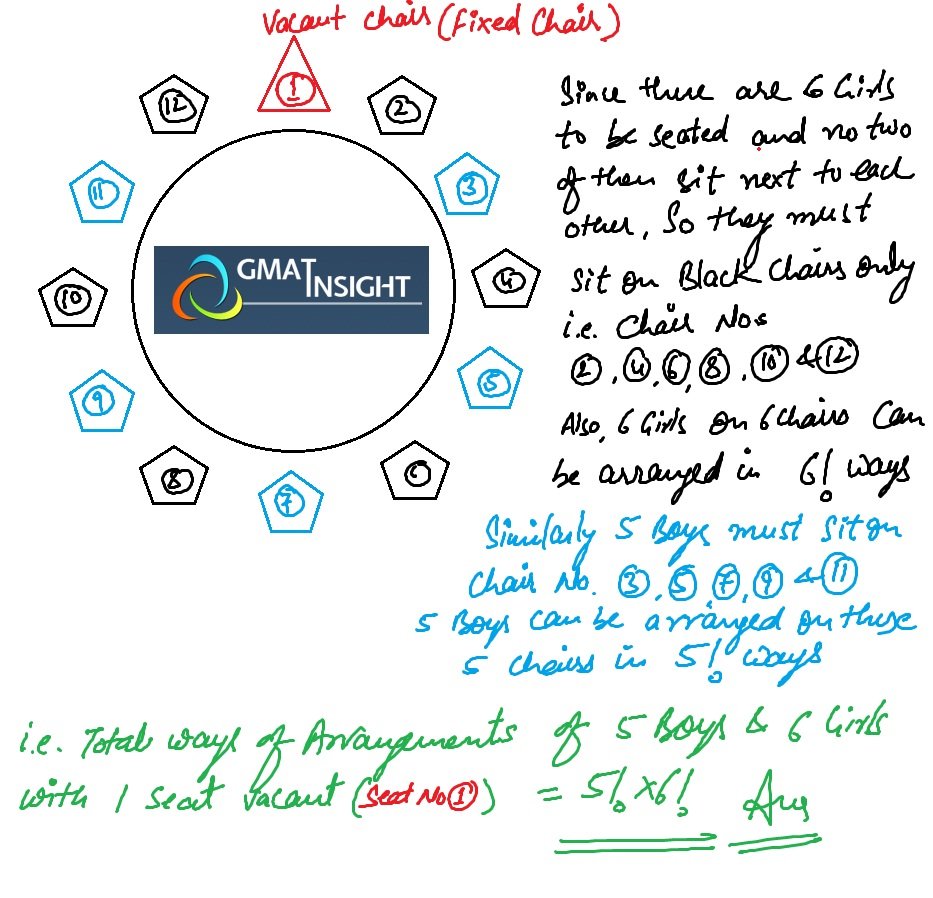 Vacant Chair (Fixed Chair)
1
12
2
11
3
GMAT INSIGHT
10
4
9
5
8
7
6
Since there are 6 Girls
to be seated and no two
of them sit next to each
other, So they must
sit on Black Chairs only
i.e. Chair Nos
2, 4, 6, 8, 10 & 12
Also, 6 Girls on 6 Chairs Can
be arranged in 6! ways
Similarly 5 Boys must sit on
Chair No. 3, 5, 7, 9 & 11
5 Boys can be arranged on these
5 chairs in 5! ways
i.e. Total ways of Arrangements of 5 Boys & 6 Girls
with 1 Seat Vacant (Seat No 1) = 5! × 6! Ans